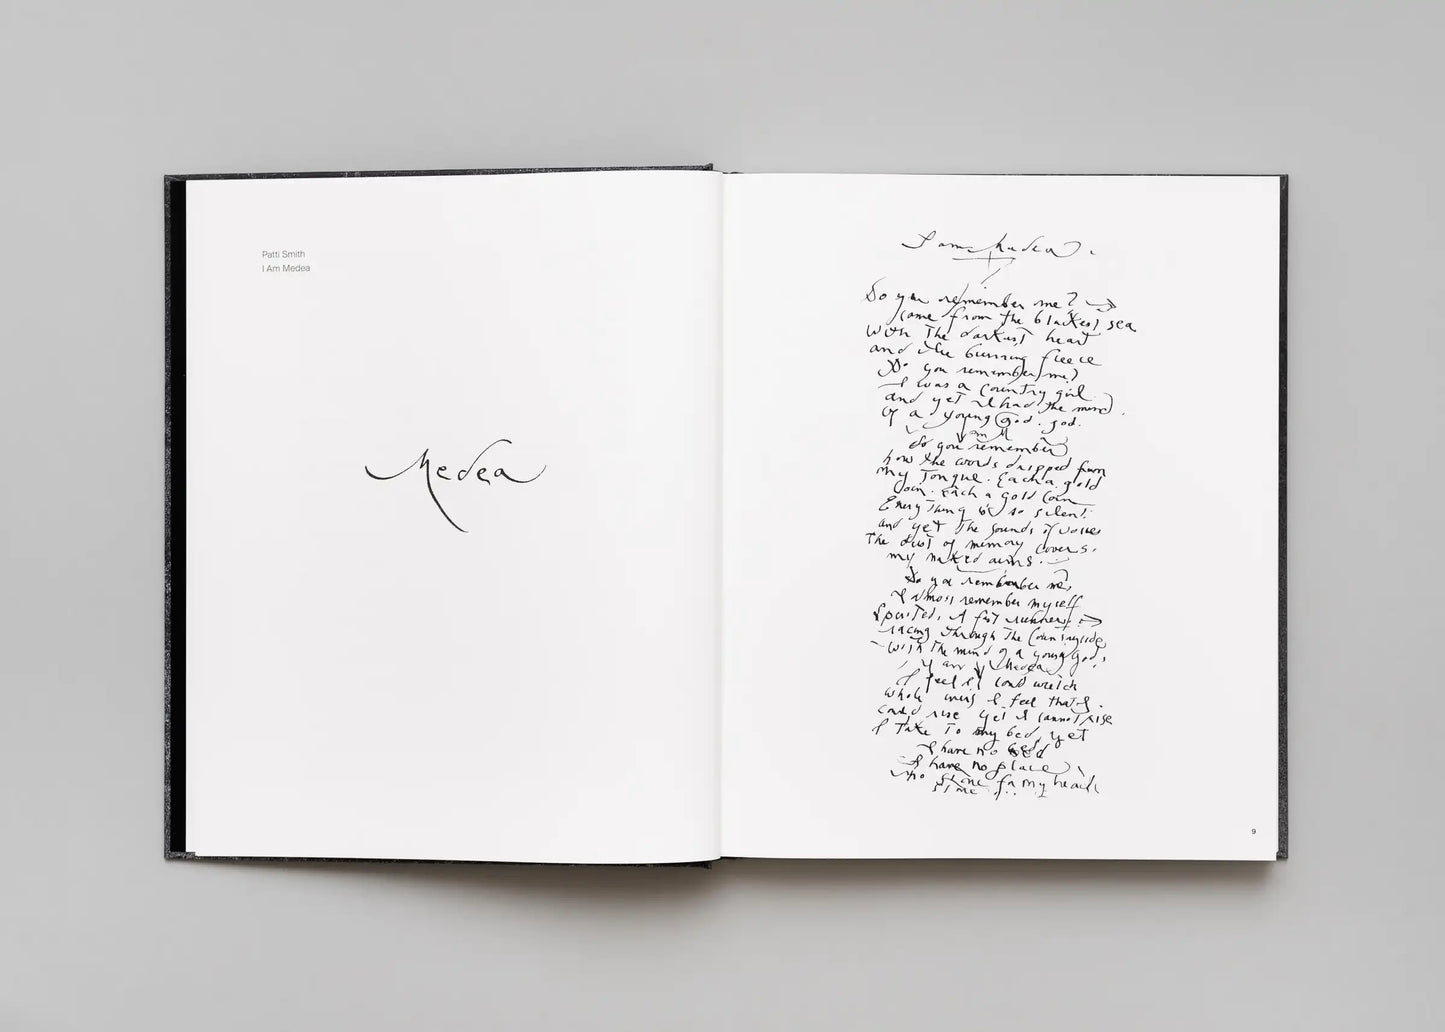 Patti Smith
I Am Medea
Medea
I am Medea.
Do you remember me?
I came from the blackest sea
with the darkest heart
and the burning fleece
Do you remember me?
I was a country girl
and yet I had the mind
of a young god. god.
I am M
Do you remember
how the words dripped from
my tongue. Each a gold
coin. Each a gold coin
Everything is so silent.
and yet the sounds of voices
The dust of memory covers
my naked arms.
Do you remember me,
I almost remember myself
Spirited, A fast runner,
racing through the countryside
with the mind of a young God,
I am Medea
I feel I could wretch
whole I feel that I
could rise yet I cannot rise
I take to my bed, yet
I have no bed
I have no place
no stone for my head
9